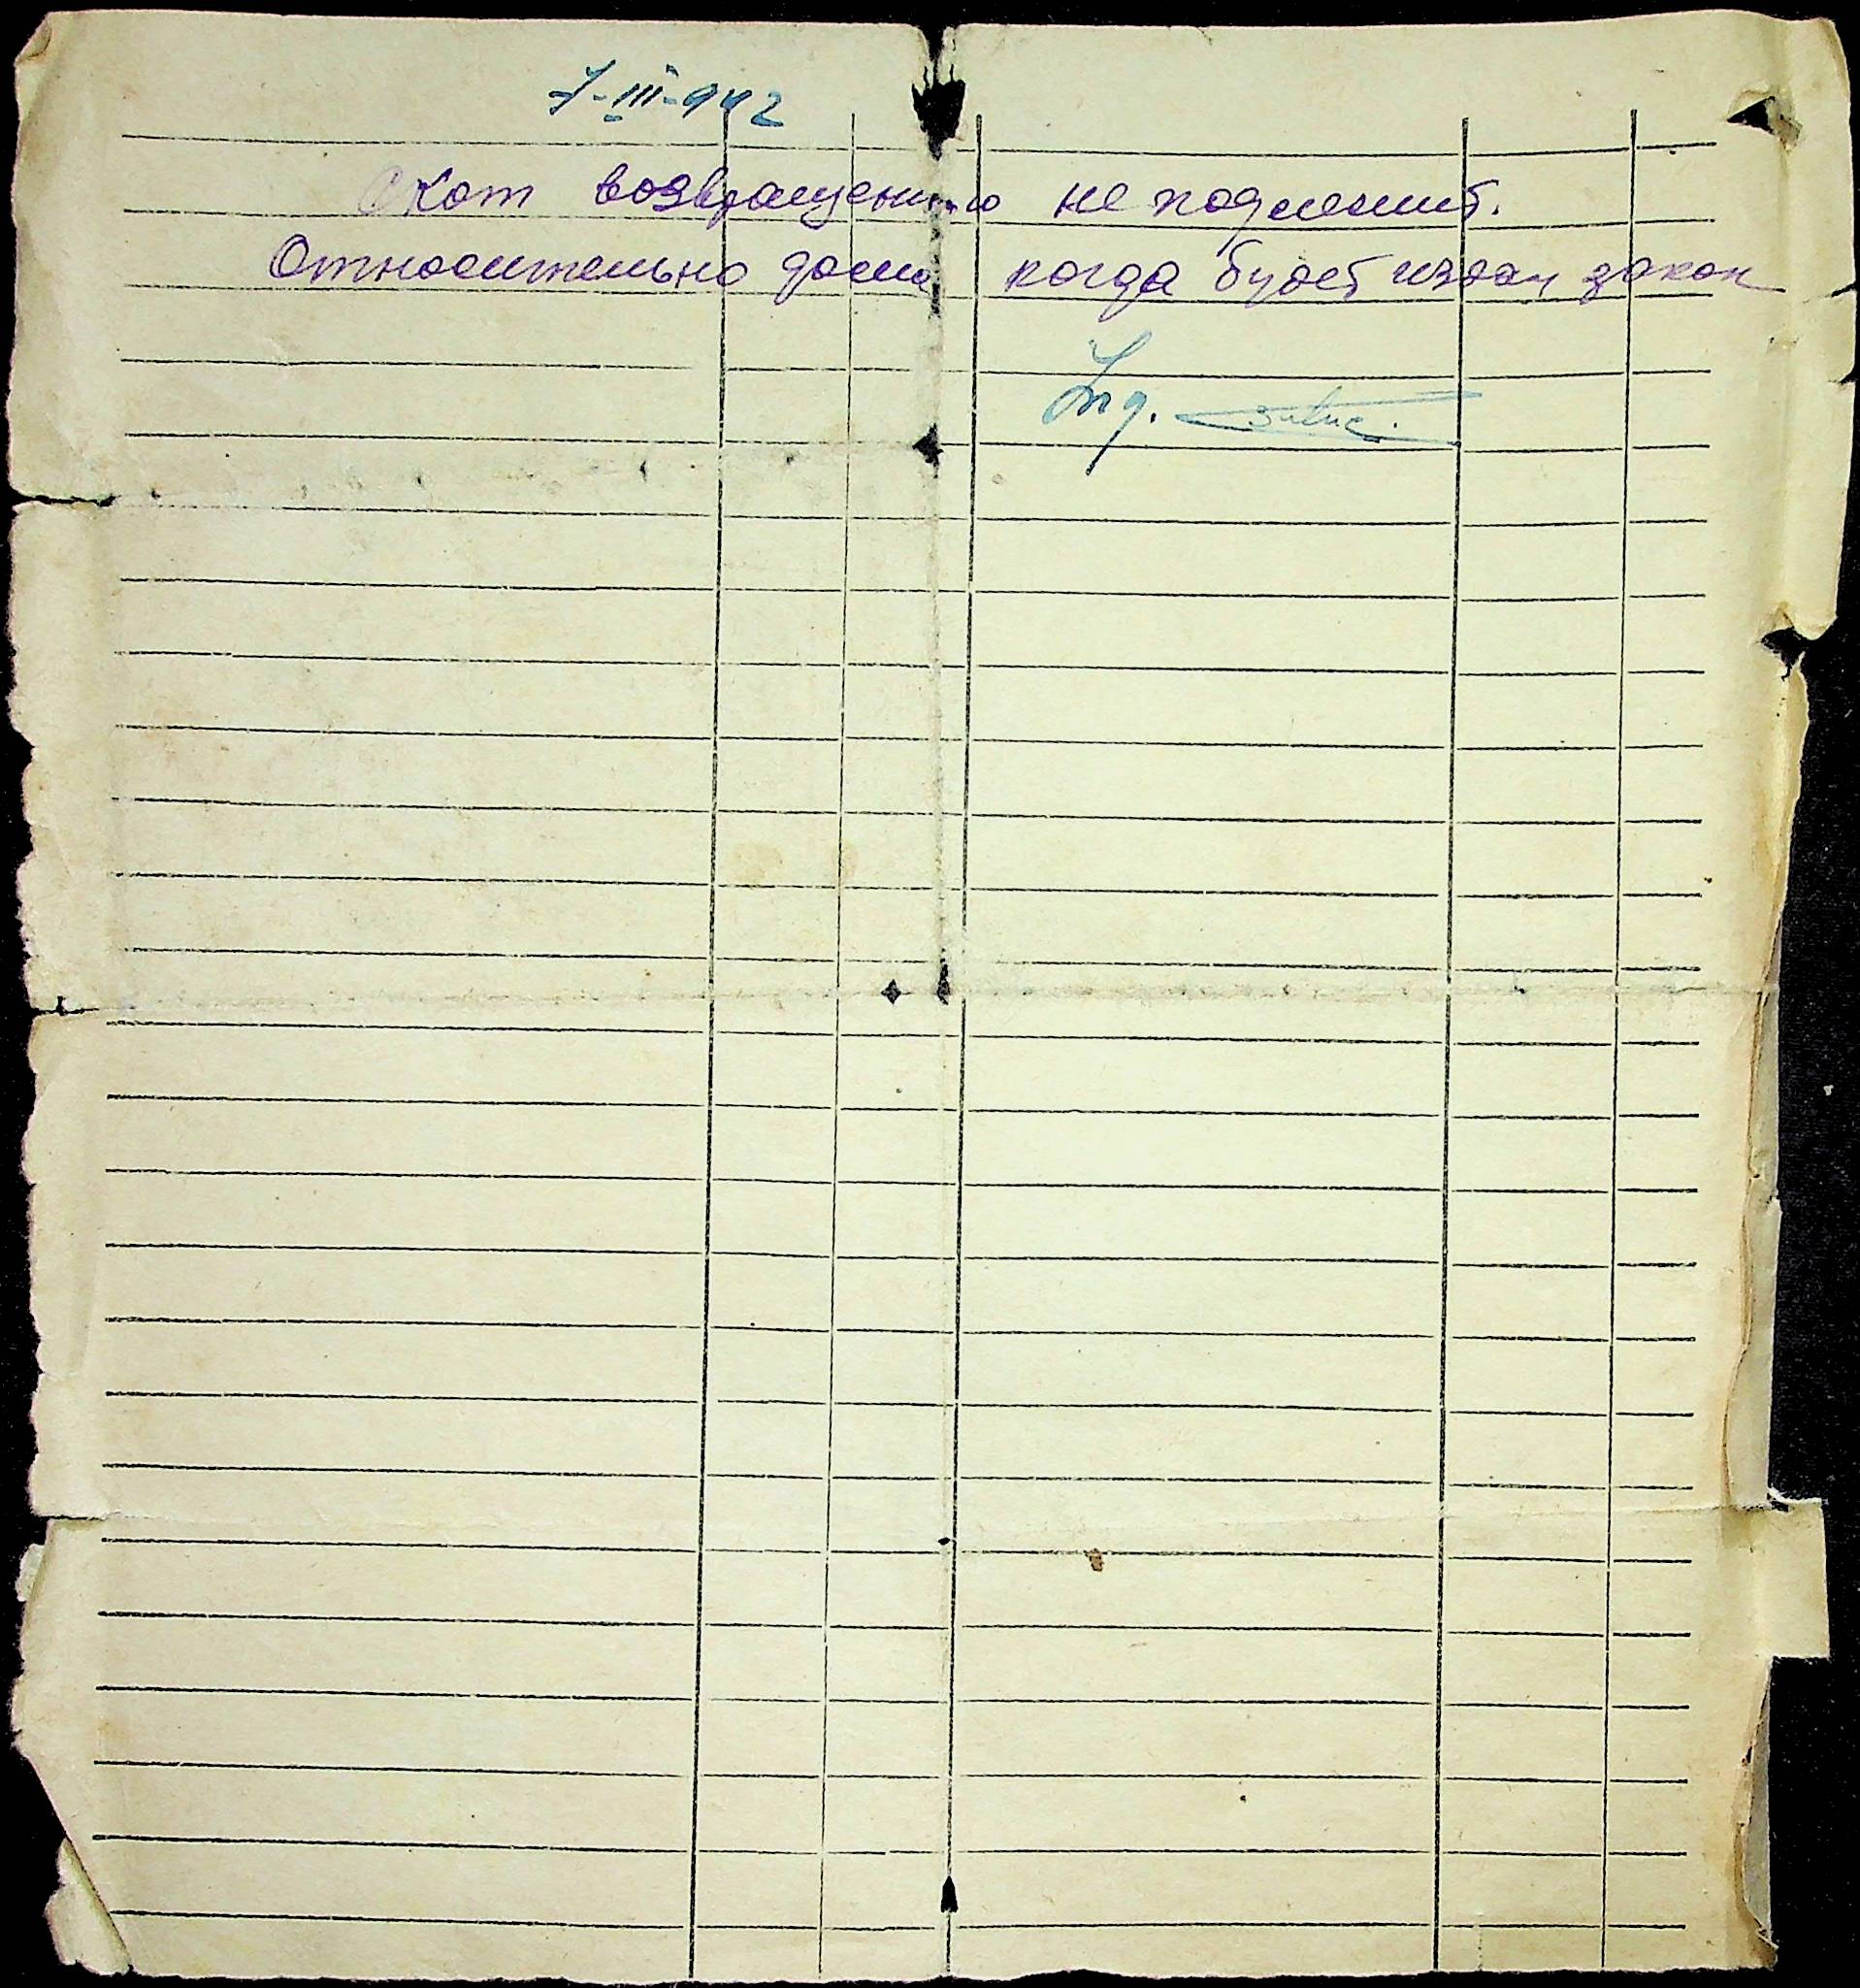 7-III-942
Скот возвращению не подлежит.
Относительно дома когда будет издан закон
Ing.